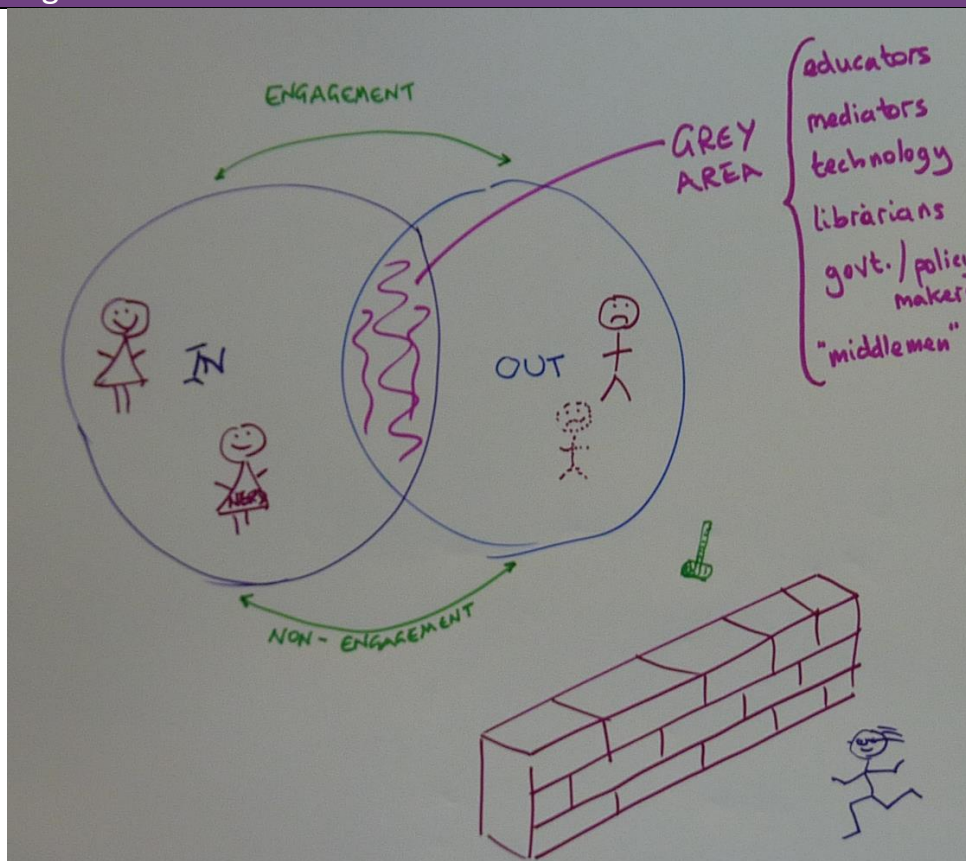 ENGAGEMENT
GREY
AREA
educators
mediators
technology
librarians
govt. / policy
maker
"middlemen"
IN
OUT
NERD
NON-ENGAGEMENT